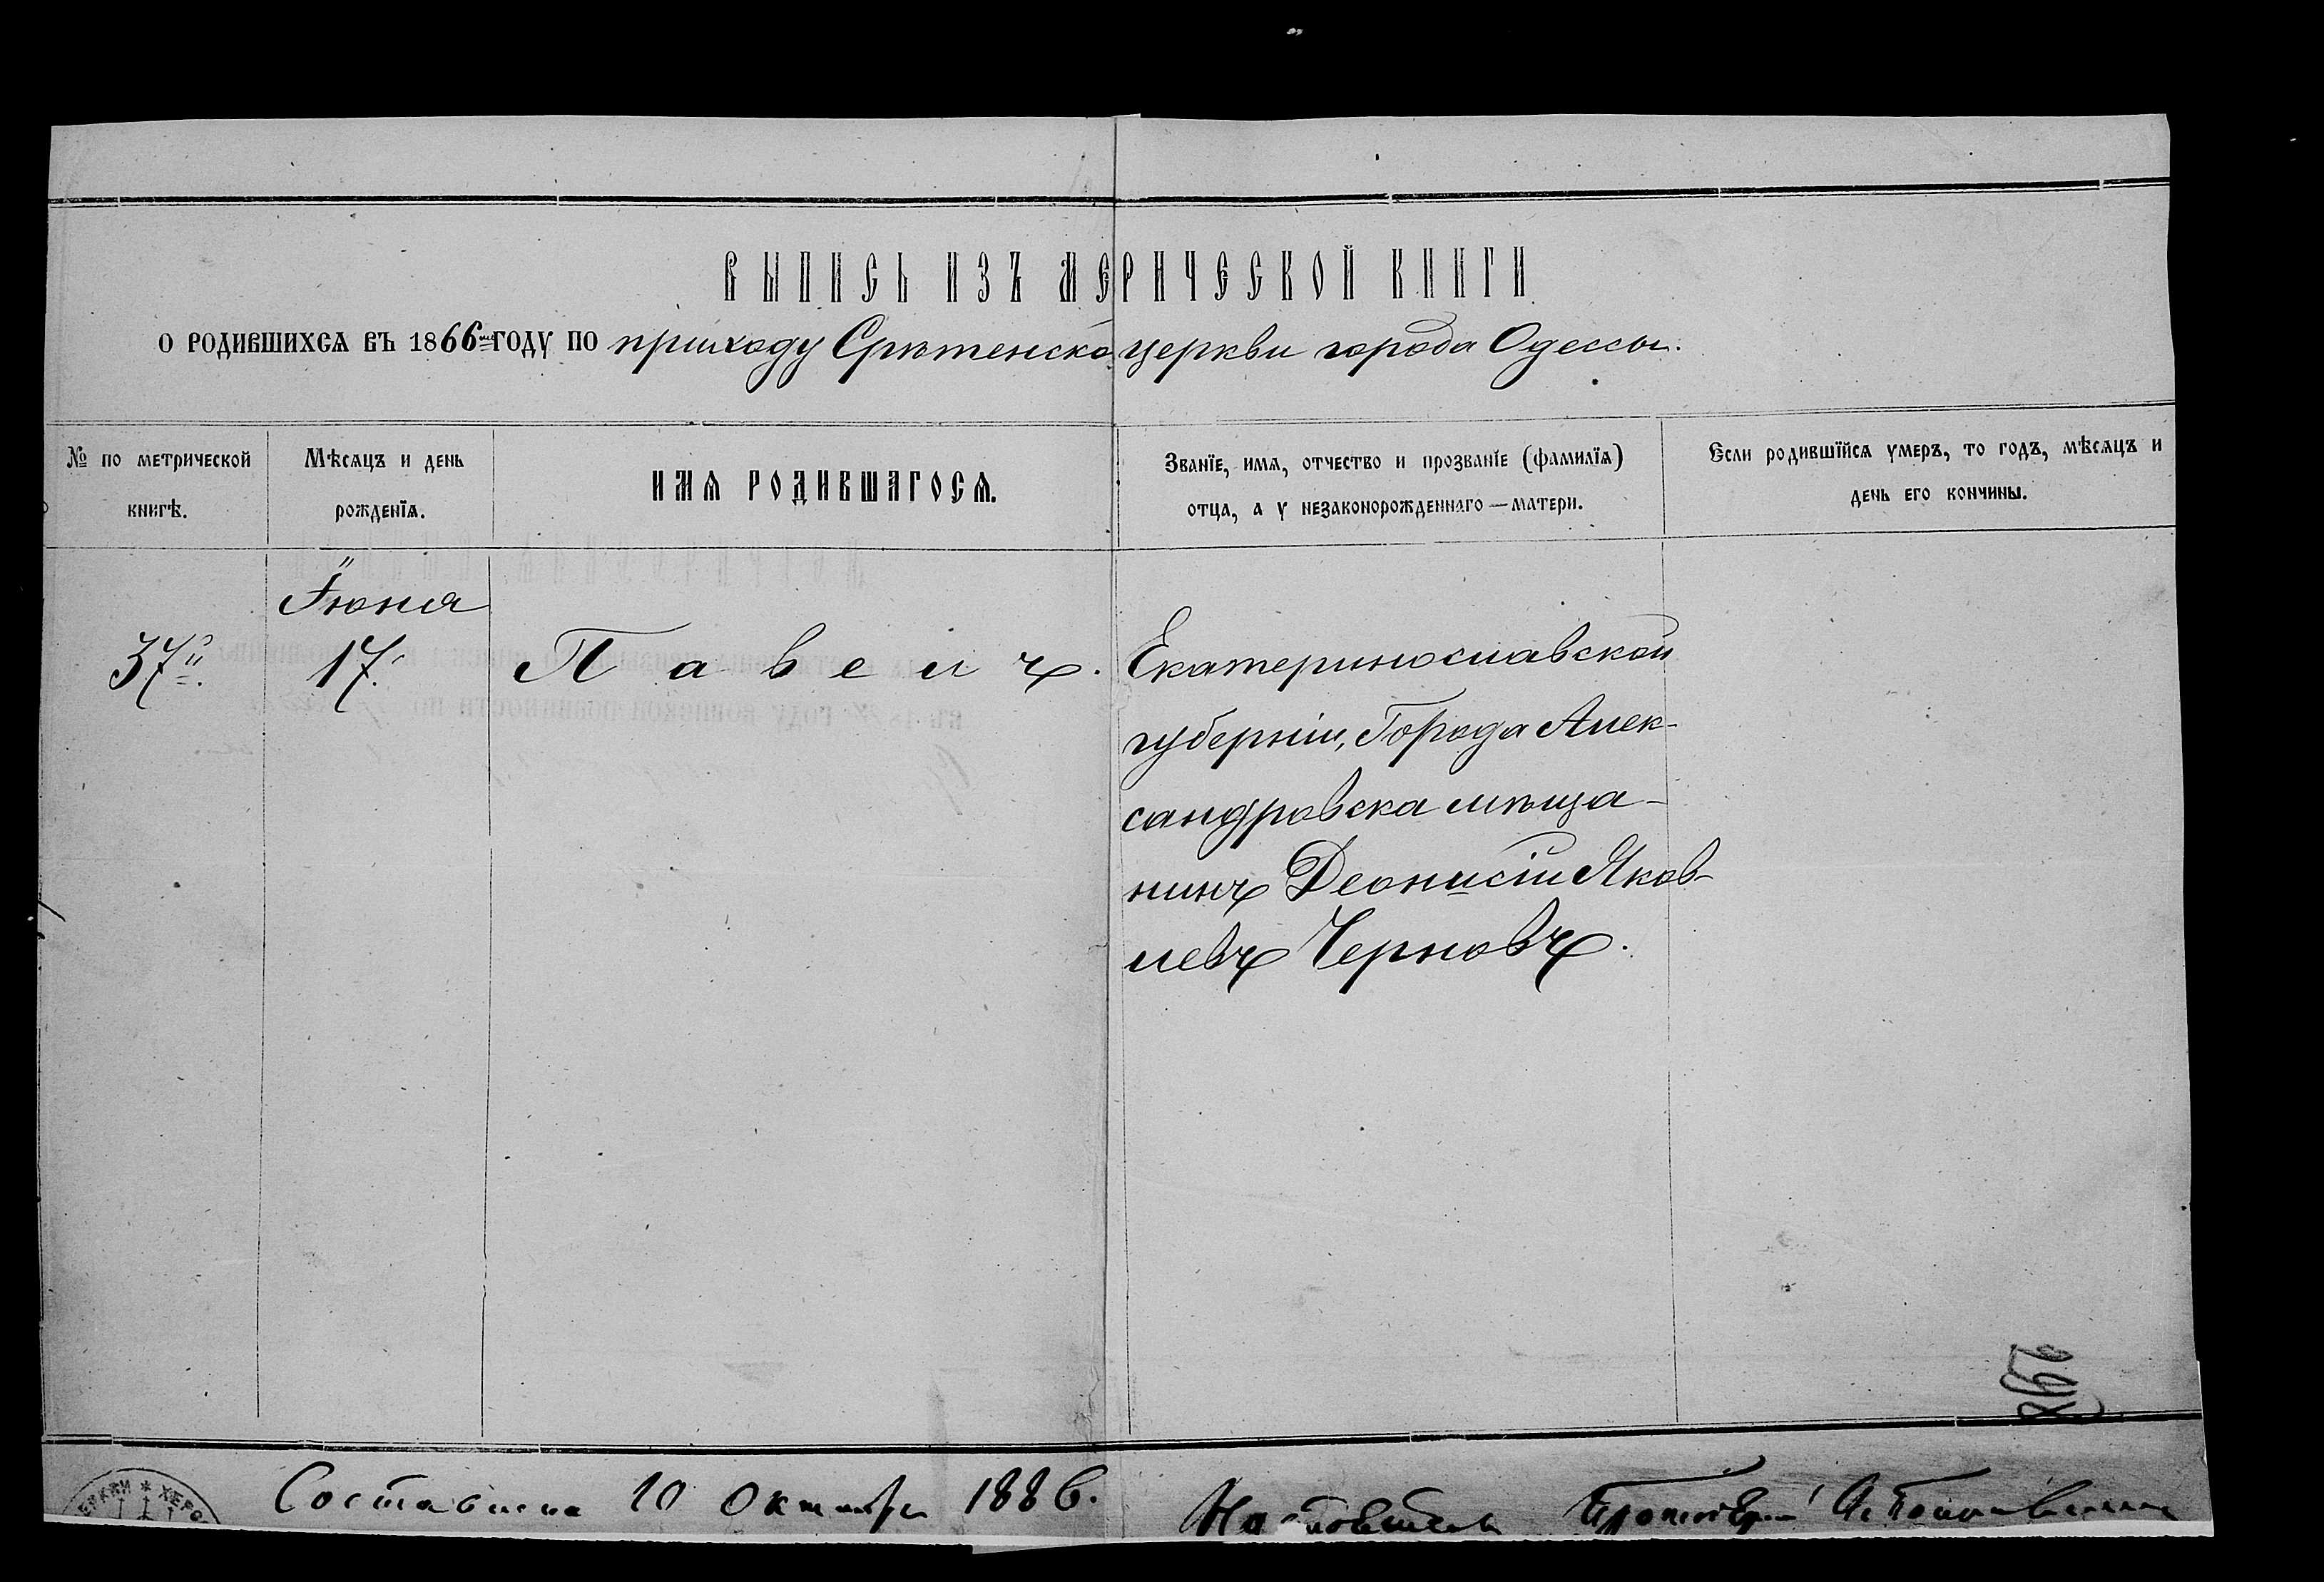 ВЫПИСЬ ИЗЪ МЕРИЧЕСКОЙ КНИГИ
О РОДИВШИХСЯ ВЪ 1866 ГОДУ ПО приходу Срѣтенско церкви города Одессы.
№ по метрической книгѣ.
Мѣсяцъ и день рожденія.
ИМЯ РОДИВШАГОСЯ.
Званіе, имя, отчество и прозваніе (фамилія)
отца, а у незаконорожденнаго—матери.
Если родившійся умеръ, то годъ, мѣсяцъ и
день его кончины.
Іюня
37й.
17.
Павелъ.
Екатеринославской
губерніи, Города Алек-
сандровска мѣща-
нинъ Деонисій Яков-
левъ Черновъ.
ЕРКВИ * ХЕРС
Составлена 10 Октября 1886.
Настоятель Протоіерей